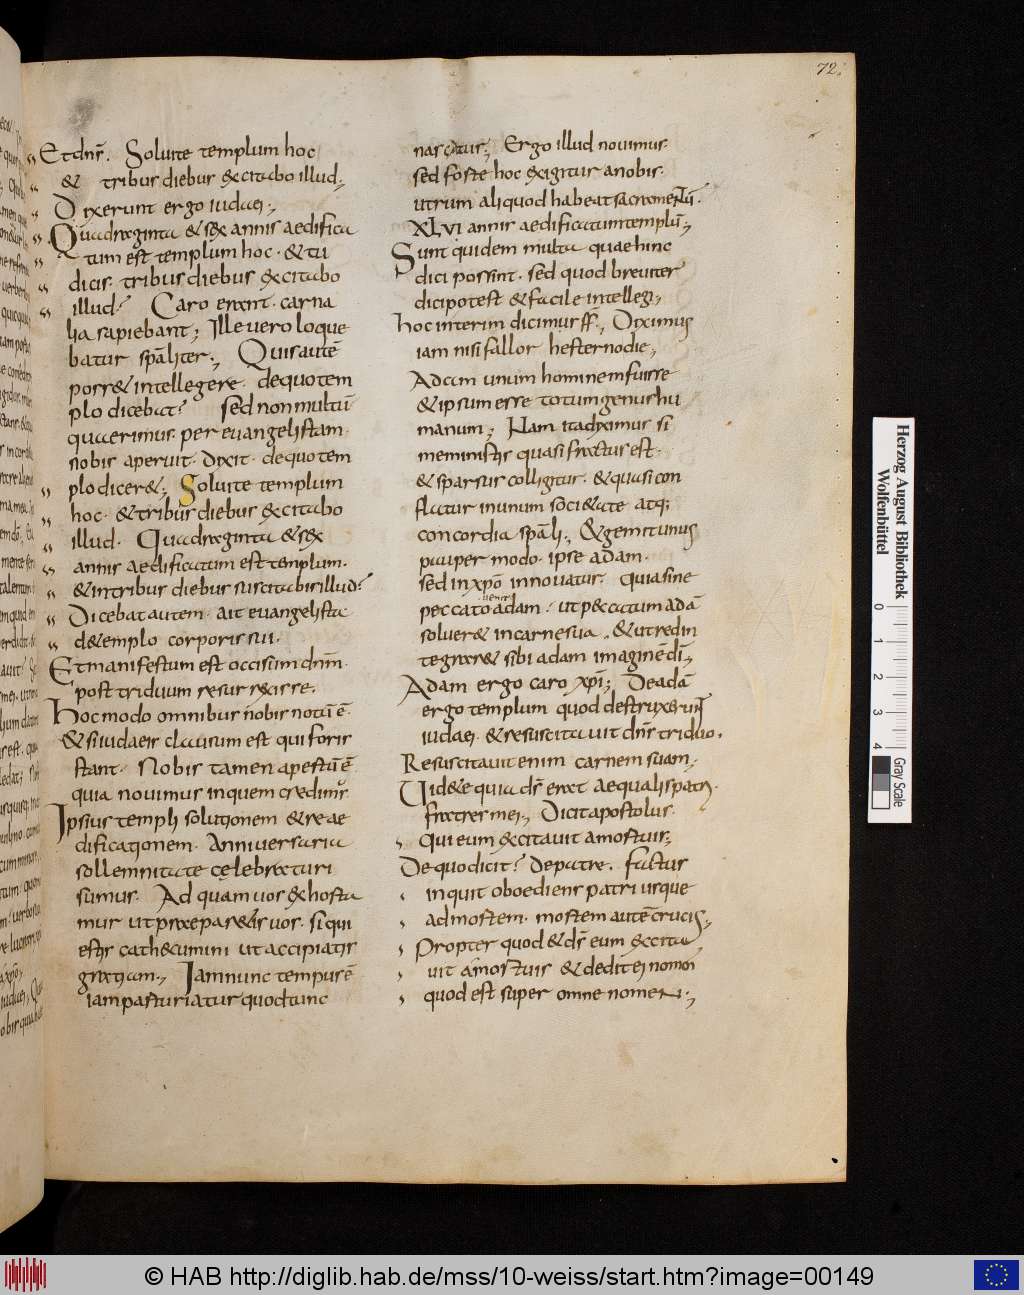 72.
Et dn̄s. Soluite templum hoc
& tribus diebus excitabo illud;
Dixerunt ergo iudaei;
Quadraginta & sex annis aedifica
tum est templum hoc. & tu
dicis. tribus diebus excitabo
illud? Caro erant. carna
lia sapiebant; Ille vero loque
batur spāliter; Quis autē
poss& intellegere. de quo tem
plo dicebat? sed non multū
quaerimus. per euangelistam
nobis aperuit. dixit. de quo tem
plo dicer&; Soluite templum
hoc. & tribus diebus excitabo
illud. Quadraginta & sex
annis aedificatum est templum.
& in tribus diebus suscitabis illud?
Dicebat autem. ait euangelista
de templo corporis sui.
Et manifestum est occisum dn̄m.
post triduum resurrexisse.
Hoc modo omnibus nobis notū ē.
& si iudaeis clausum est qui foris
stant. Nobis tamen apertū ē
quia novimus in quem credimus.
Ipsius templi solutionem & reae
dificationem. Anniversaria
sollemnitate celebraturi
sumus. Ad quam uos exhorta
mur ut praeparetis uos. si qui
estis cathecumini ut accipiatis
gratiam; Iam nunc tempus ē
iam parturiatur quod tunc
nascatur; Ergo illud novimus.
sed forte hoc exigitur a nobis.
utrum aliquod habeat sacramentū.
XLVI annis aedificatum templū;
Sunt quidem multa quae hinc
dici possint. sed quod breuiter
dici potest & facile intellegi;
hoc interim dicimus ff; Diximus
iam nisi fallor hesterno die;
Adam unum hominem fuisse
& ipsum esse totum genus hu
manum; Nam ita diximus si
meministis quasi fractus est.
& sparsus colligitur. & quasi con
flatur in unum societate atq;
concordia spāli; & gemit unus
pauper modo. ipse adam.
sed in xp̄o innouatur. quia sine
peccato uenit adam. ut peccatum adā
soluer& in carne sua. & ut redin
tegrar& sibi adam imaginē dī;
Adam ergo caro xp̄i; De adā
ergo templum quod destruxerunt
iudaei. & resuscitauit dn̄s triduo.
Resuscitauit enim carnem suam;
Uidete quia ds̄ erat aequalis patri.
fratres mei; Dicit apostolus.
Qui eum excitauit a mortuis;
De quo dicit? De patre. factus
inquit oboediens patri usque
ad mortem. mortem autē crucis;
Propter quod & ds̄ eum excita
uit a mortuis & dedit ei nomen
quod est super omne nomen;
Herzog August Bibliothek
Wolfenbüttel
0 1 2 3 4
Gray Scale
© HAB http://diglib.hab.de/mss/10-weiss/start.htm?image=00149